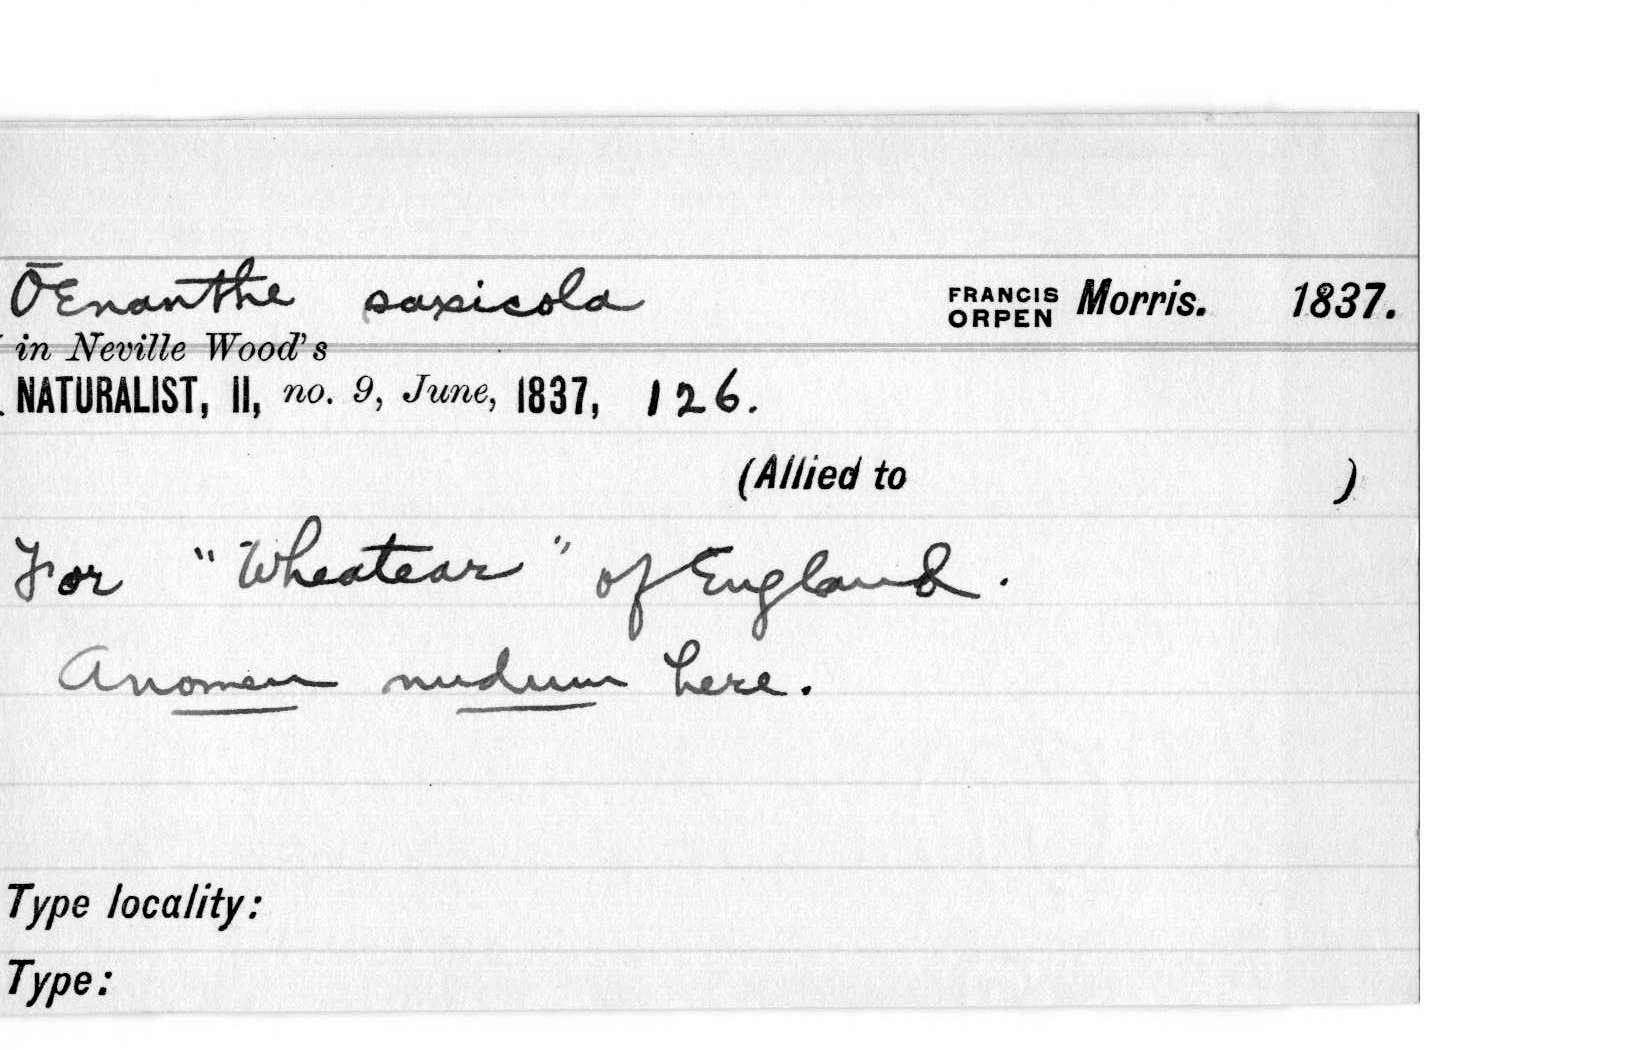 ŌEnanthe saxicola FRANCIS ORPEN Morris. 1837.
in Neville Wood's
NATURALIST, II, no. 9, June, 1837, 126.
(Allied to )
For "Wheatear" of England.
A nomen nudum here.
Type locality:
Type: